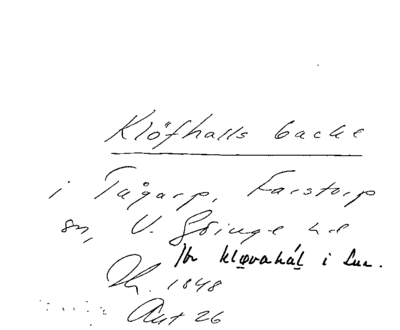 Klöfhalls backe
i Tågarp, Farstorp
sn, V. Göinge hd
klovahál i
1848
26